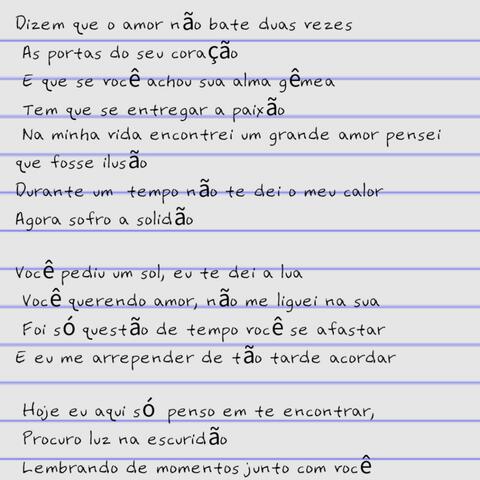 Dizem que o amor não bate duas vezes
As portas do seu coração
E que se você achou sua alma gêmea
Tem que se entregar a paixão
Na minha vida encontrei um grande amor pensei
que fosse ilusão
Durante um tempo não te dei o meu calor
Agora sofro a solidão
Você pediu um sol, eu te dei a lua
Você querendo amor, não me liguei na sua
Foi só questão de tempo você se afastar
E eu me arrepender de tão tarde acordar
Hoje eu aqui só penso em te encontrar,
Procuro luz na escuridão
Lembrando de momentos junto com você